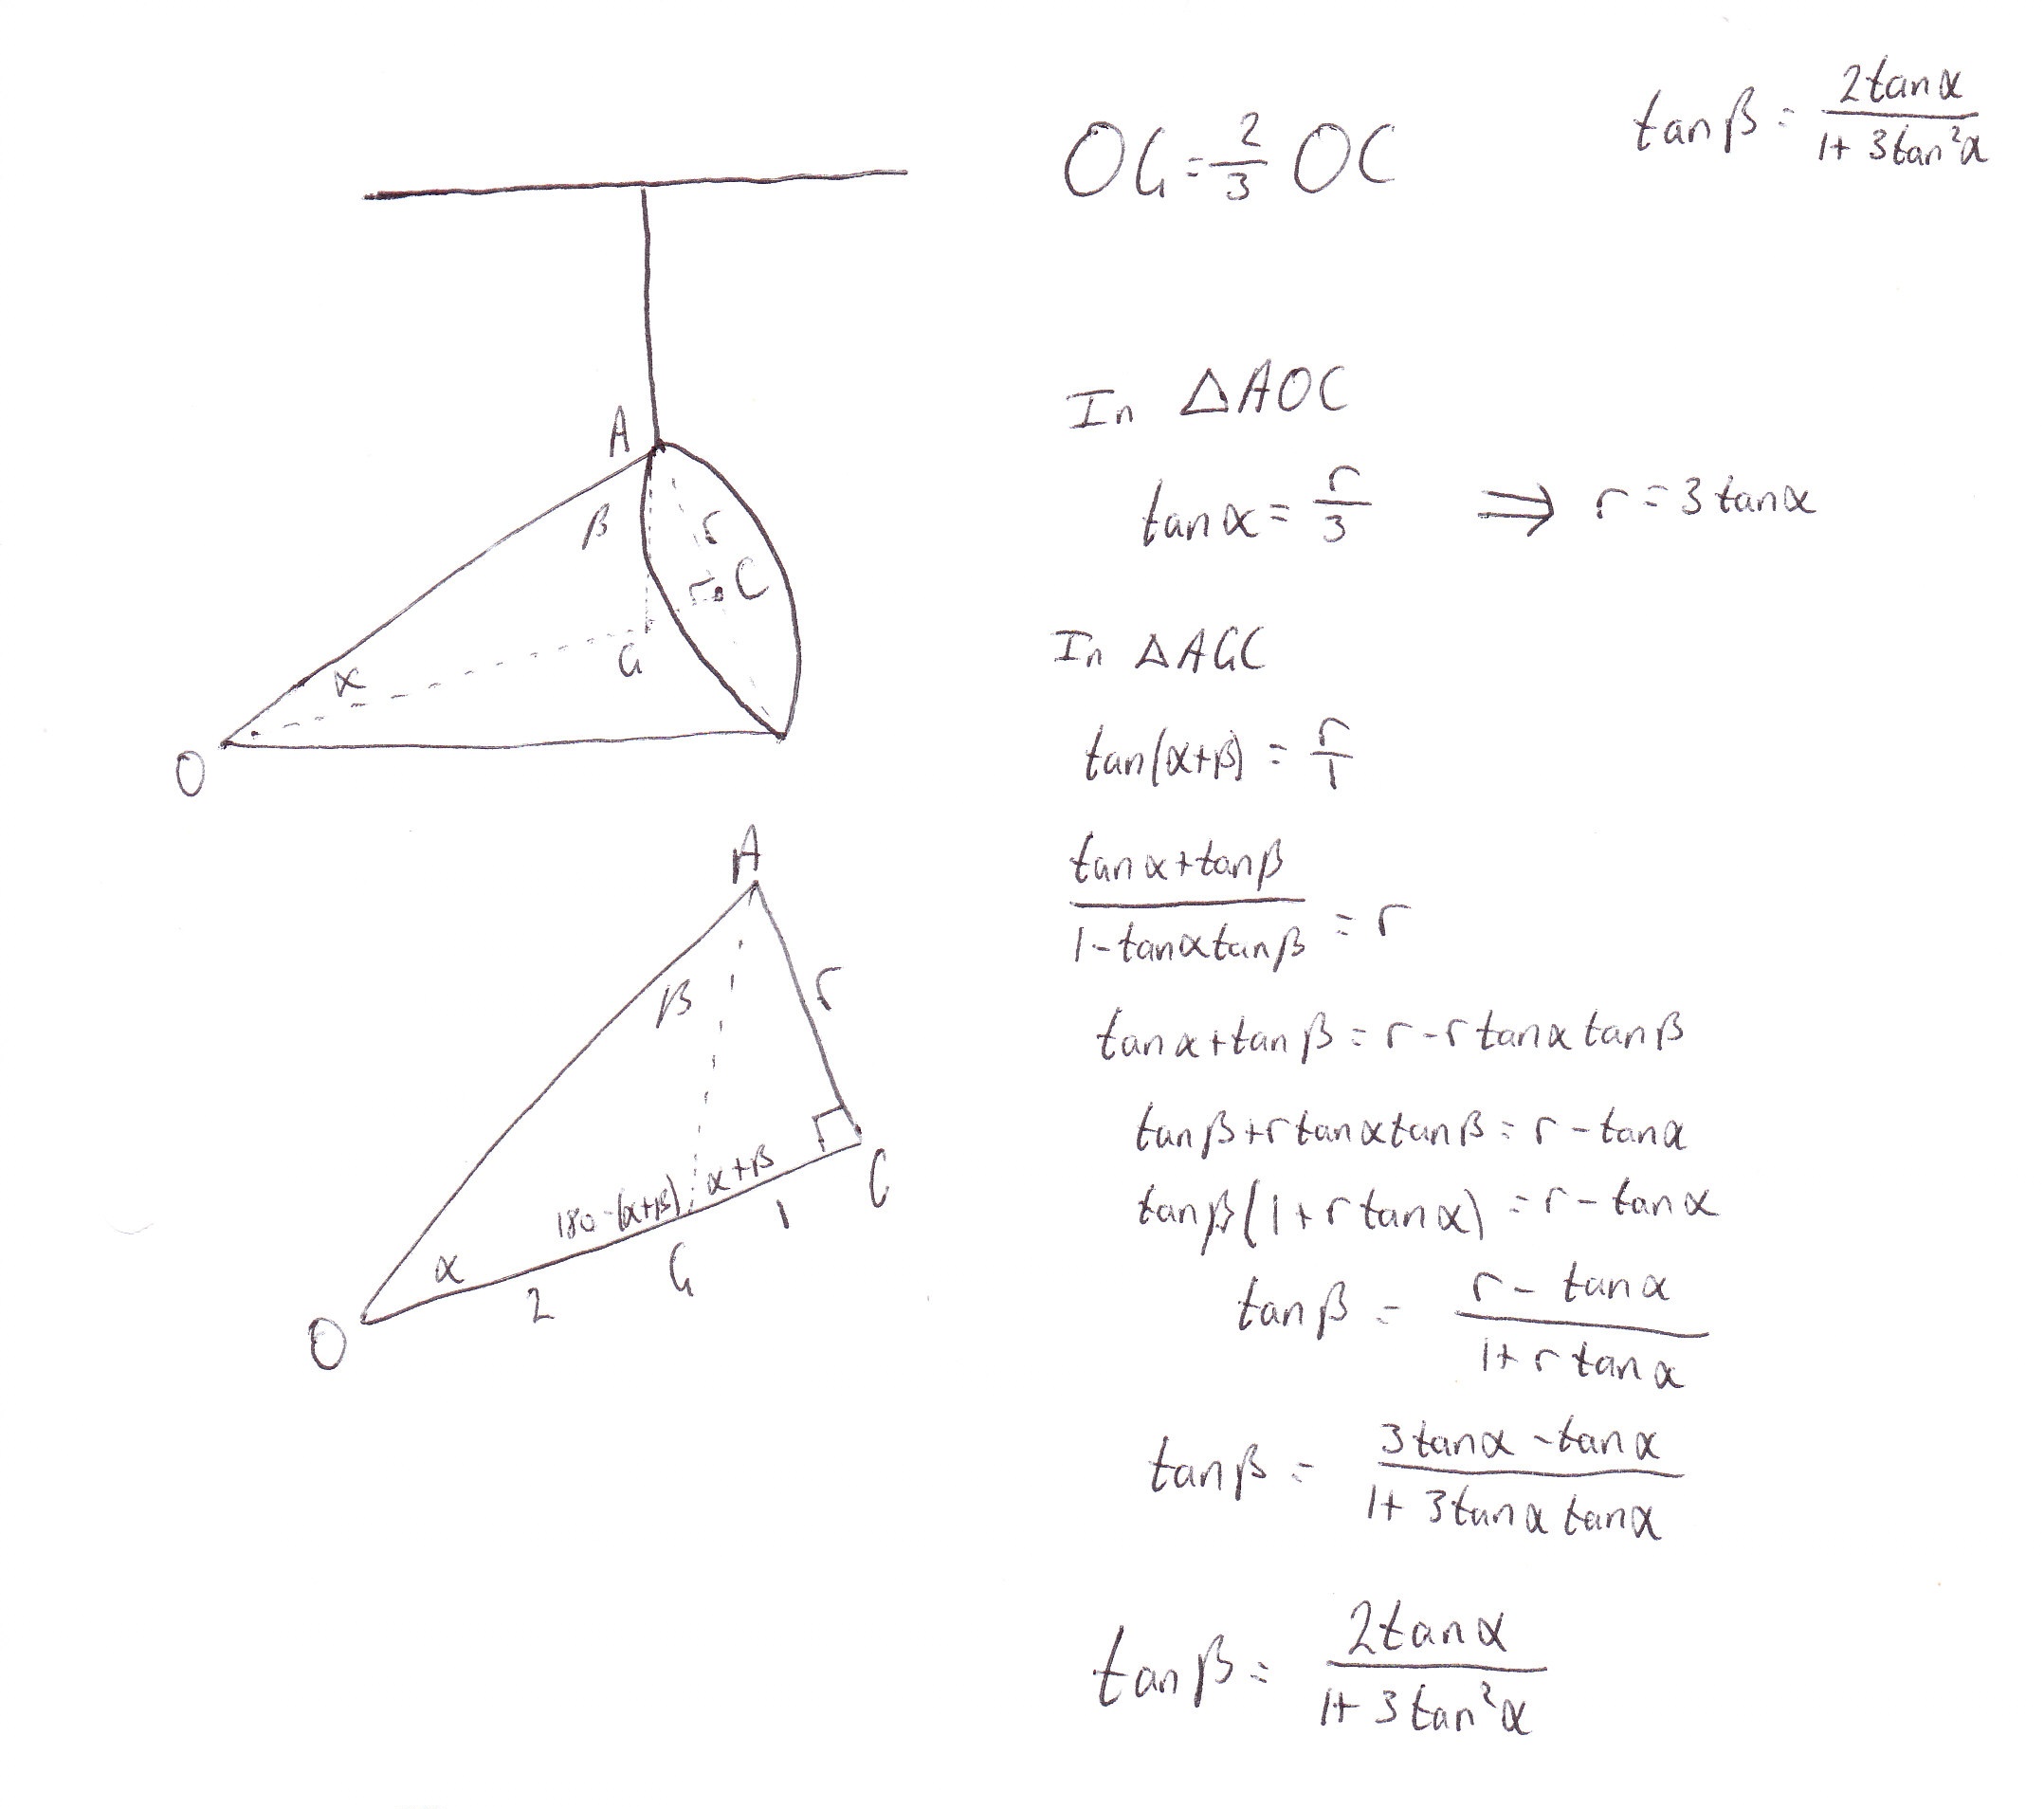 OG = 2/3 OC
tanβ = 2tanα / 1+3tan²α
A
β
r
C
G
α
O
In △AOC
tanα = r/3 ⟹ r = 3tanα
In △AGC
tan(α+β) = r/1
tanα+tanβ / 1-tanαtanβ = r
tanα+tanβ = r-rtanαtanβ
tanβ+rtanαtanβ = r-tanα
tanβ(1+rtanα) = r-tanα
tanβ = r-tanα / 1+rtanα
tanβ = 3tanα-tanα / 1+3tanαtanα
tanβ = 2tanα / 1+3tan²α
A
β
r
180-(α+β)
α+β
C
1
G
α
2
O